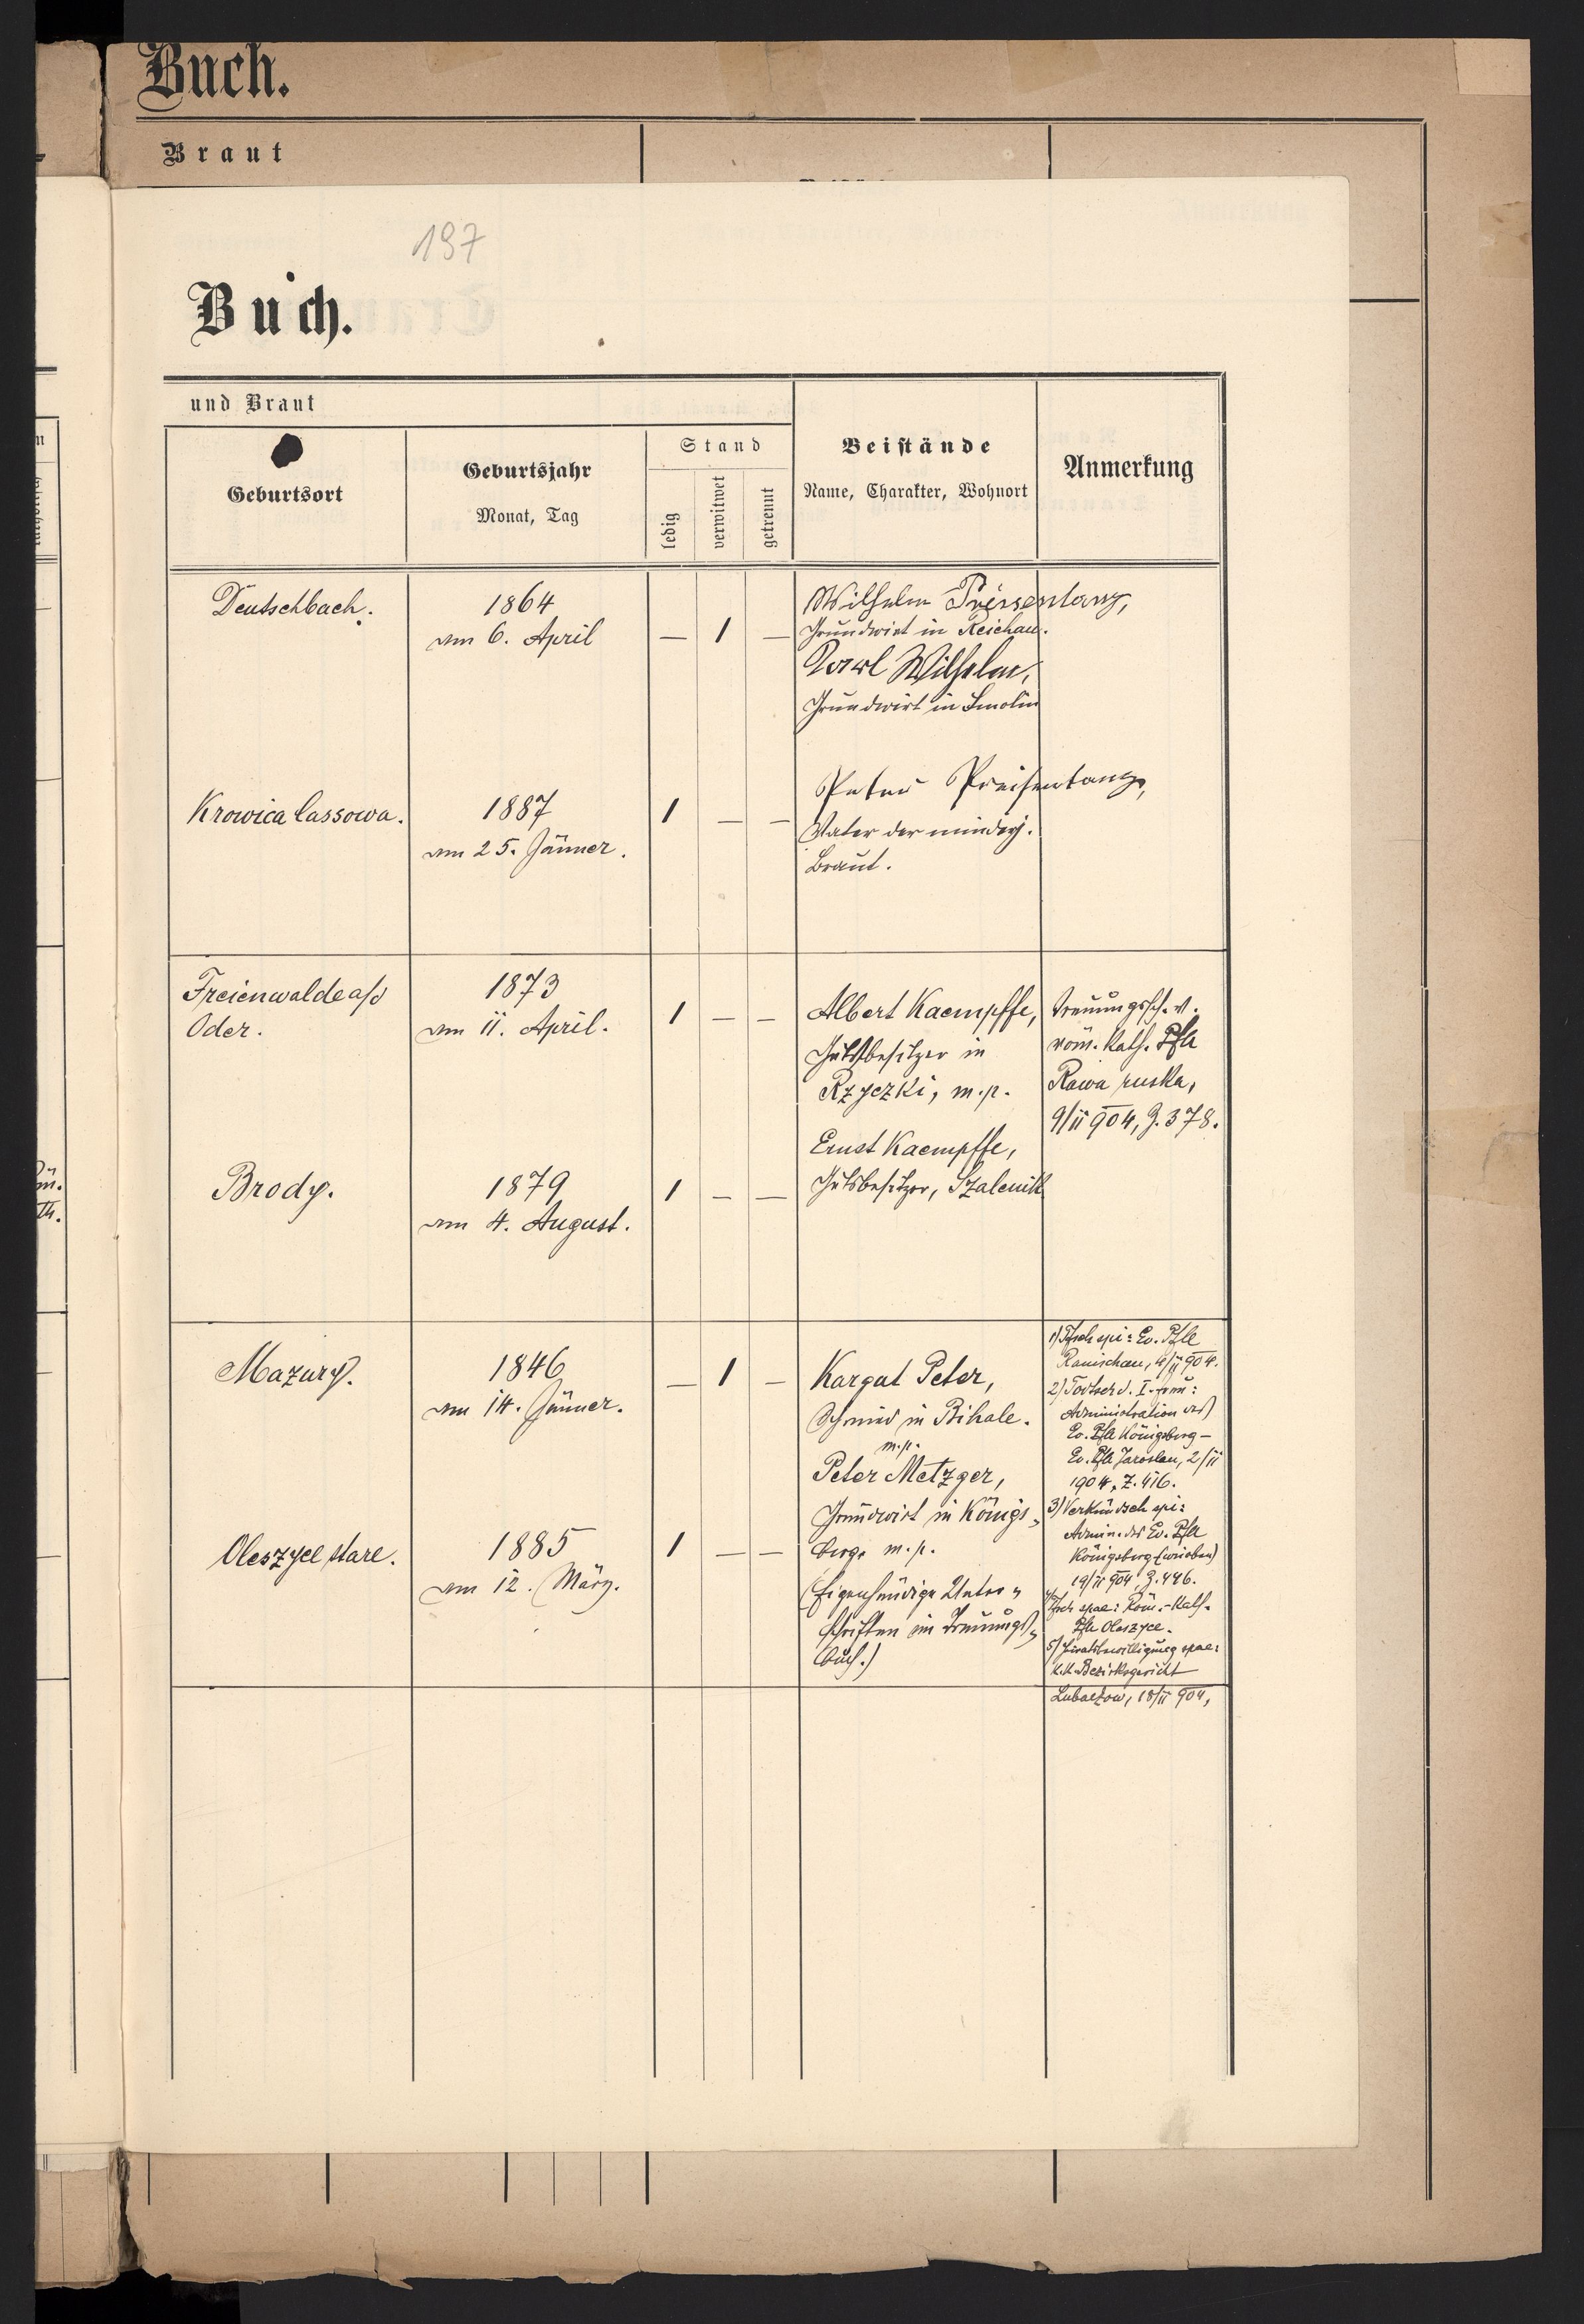 Buch.
Braut
197
Buch.
und Braut
Geburtsort
Geburtsjahr
Monat, Tag
Stand
ledig
verwitwet
getrennt
Beistände
Name, Charakter, Wohnort
Anmerkung
Deutschbach.
1864
am 6. April
— 1 —
Wilhelm Preissentanz,
Grundwirt in Reichau.
Karl Wilhelm,
Grundwirt in Smolin
Krowica lassowa.
1887
am 25. Jänner.
1 — —
Peter Preisentanz,
Vater der minderj.
Braut.
Freienwalde a/d
Oder.
1873
am 11. April.
1 — —
Albert Kaempffe,
Gutsbesitzer in
Rzyczki, m.p.
Ernst Kaempffe,
Gutsbesitzer, Szalenik
Trauungssch. v.
röm. kath. Pfa
Rawa ruska,
9/II 904, Z. 378.
Brody.
1879
am 4. August.
1 — —
Mazury.
1846
am 14. Jänner.
— 1 —
Kargut Peter,
Schmied in Bihale.
m.p.
Peter Metzger,
Grundwirt in Königs-
berg. m.p.
(Eigenhändige Unter-
schriften im Trauungs-
buch.)
Oleszyce stare.
1885
am 12. März.
1 — —
1) Tfsch spi: Ev. Pfle
Ranischau, 4/II 904.
2) Todtsch d. I. Frau:
Administration der
Ev. Pfa Königsberg –
Ev. Pfa Jaroslau, 2/II
1904, Z. 416.
3) Verkündsch spi:
Admin. der Ev. Pfa
Königsberg
19/II 904, Z. 446.
4) Tfsch spae: Röm.-Kath.
Pfa Oleszyce.
5) Heiratsbewilligung spae:
k.k. Bezirksgericht
Lubaczow, 18/II 904,